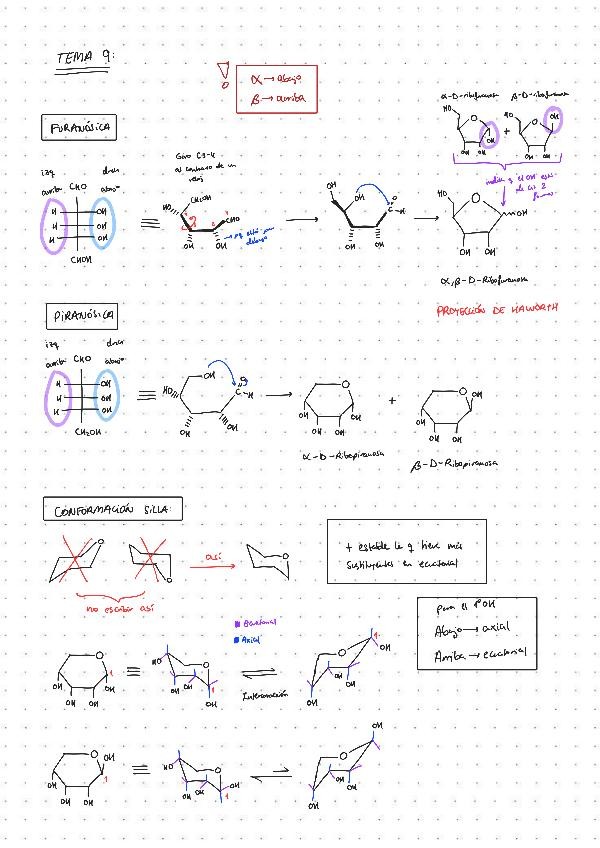 TEMA 9:
α → abajo
β → arriba
FURANÓSICA
α-D-ribofuranosa
β-D-ribofuranosa
HO
HO
O
O
OH
+
OH
OH
OH
OH
OH
izq
drch
arriba
CHO
abajo
H
OH
H
OH
H
OH
CH₂OH
≡
Giro C3-4
al contrario de un
reloj
CH₂OH
HO
CHO
OH
OH
OH
OH
O
C-H
OH
OH
HO
O
OH
OH
OH
indica q el OH está
de las 2
formas
α,β-D-Ribofuranosa
PROYECCIÓN DE HAWORTH
PIRANÓSICA
izq
drch
arriba
CHO
abajo
H
OH
H
OH
H
OH
CH₂OH
≡
OH
O
HO
C-H
OH
OH
O
OH
OH
OH
OH
+
O
OH
OH
OH
OH
α-D-Ribopiranosa
β-D-Ribopiranosa
CONFORMACIÓN SILLA:
O
O
así
O
no escribir así
+ estable la q tiene más
sustituyentes en ecuatorial
para el 1º OH
Abajo → axial
Arriba → ecuatorial
Ecuatorial
Axial
O
1
OH
OH
OH
OH
≡
HO
O
OH
OH
1
OH
Interconversión
O
1
OH
OH
OH
OH
O
OH
1
OH
OH
OH
≡
OH
O
OH
OH
OH
1
OH
O
OH
OH
OH